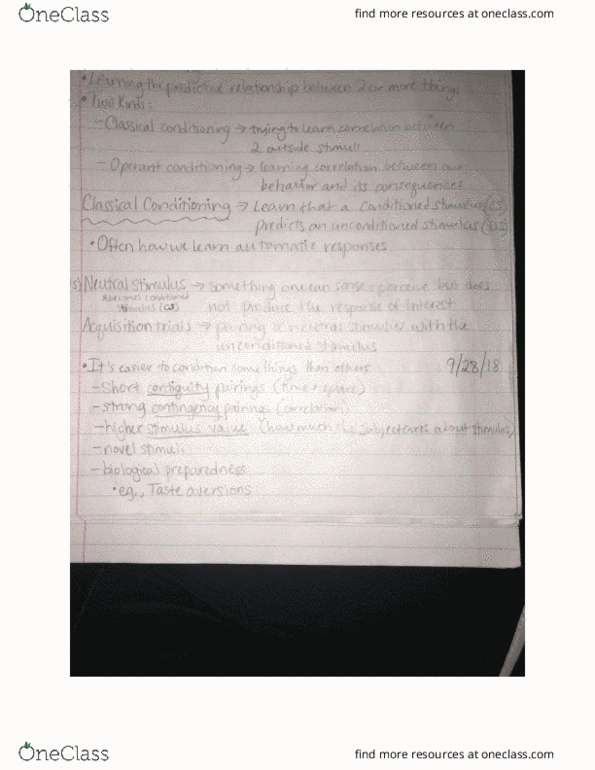 OneClass
find more resources at oneclass.com
• Learning the predictive relationship between 2 or more things
• Two Kinds:
- Classical conditioning → trying to learn correlation between
2 outside stimuli
- Operant conditioning → learning correlation between our
behavior and its consequences
Classical Conditioning → Learn that a conditioned stimulus (CS)
predicts an unconditioned stimulus (US)
• Often how we learn automatic responses
Neutral Stimulus → something one can sense + perceive but does
conditioned
stimulus (CS)
not produce the response of interest
Acquisition trials → pairing a neutral stimulus with the
unconditioned stimulus
• It's easier to condition some things than others 9/28/18
- Short contiguity pairings (time + space)
- strong contingency pairings (correlation)
- higher stimulus value (how much the subject cares about stimulus)
- novel stimuli
- biological preparedness
• eg., Taste aversions
OneClass
find more resources at oneclass.com